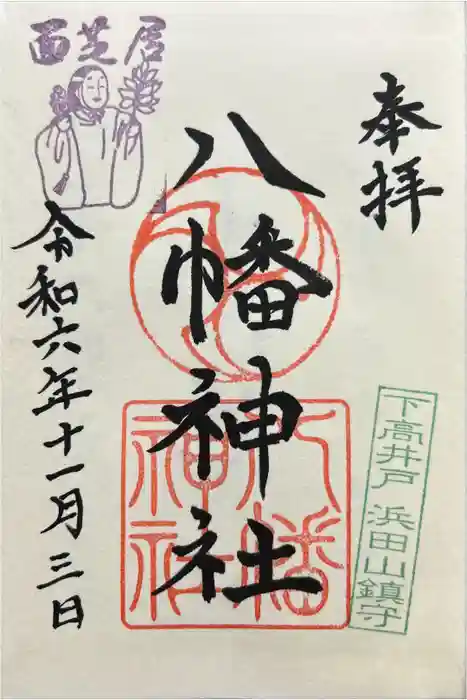 奉拝
八幡神社
令和六年十一月三日
面芝居
八幡
神社
下高井戸 浜田山鎮守